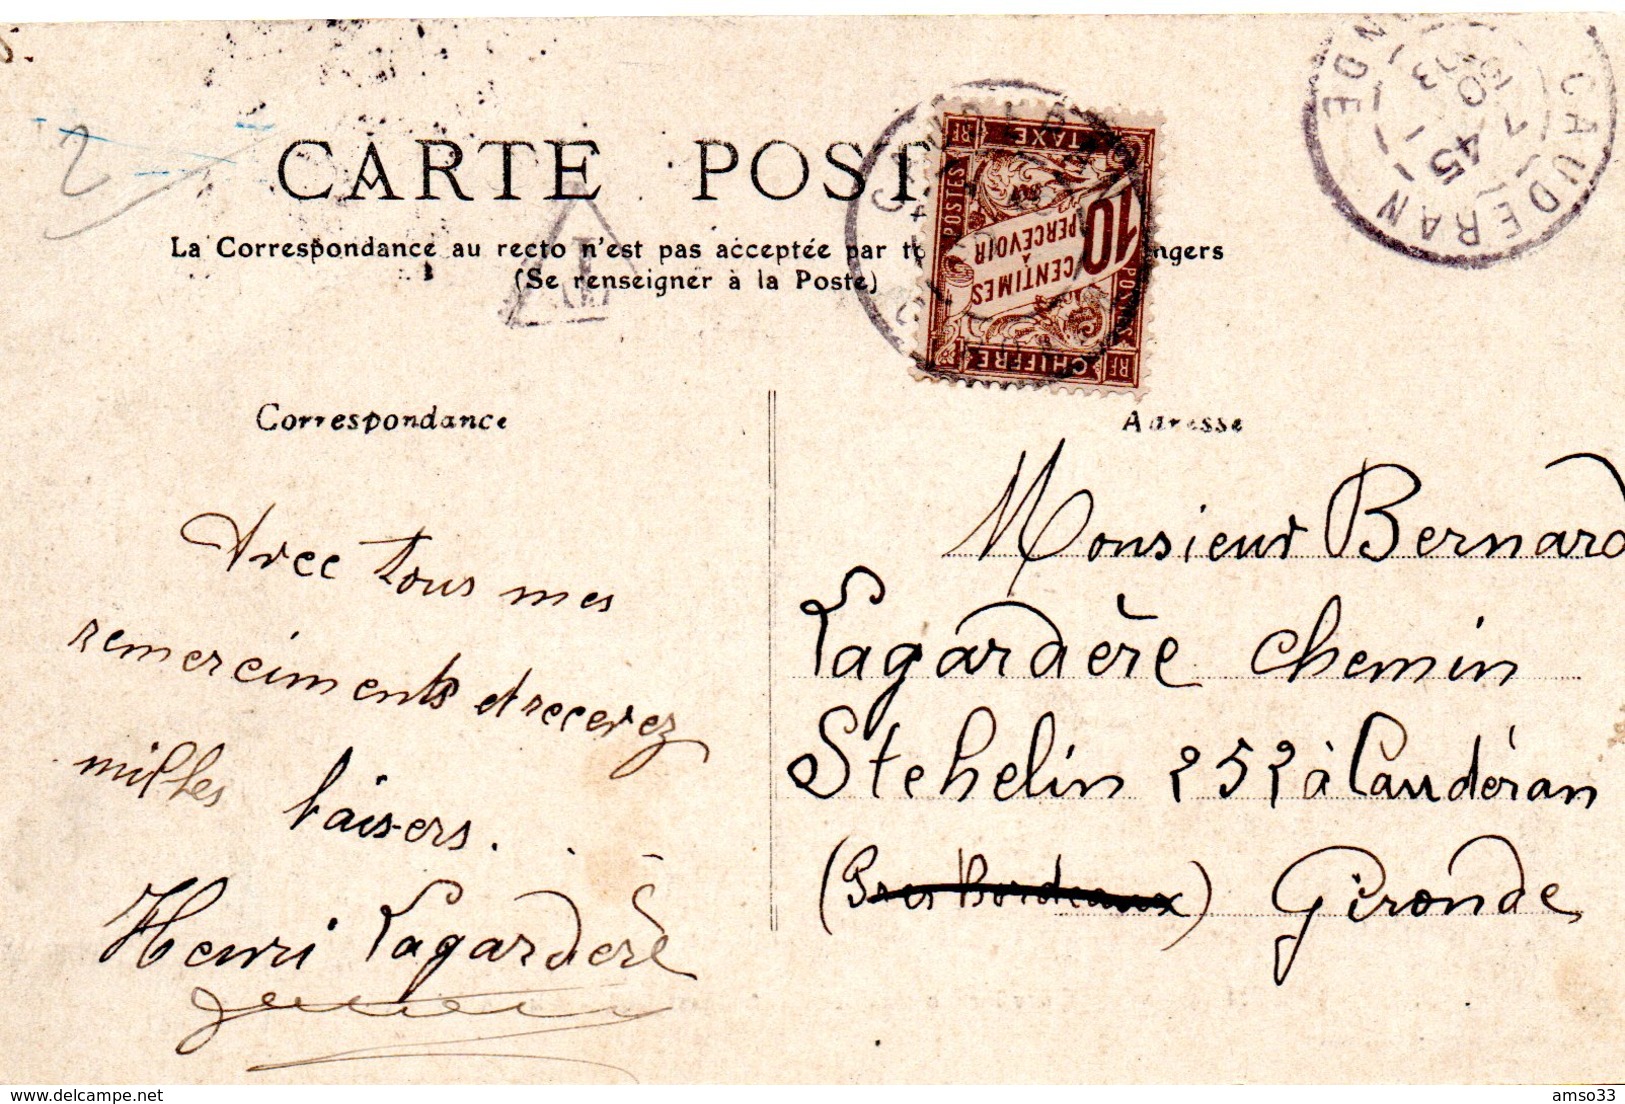 CARTE POST
La Correspondance au recto n'est pas acceptée par to ngers
(Se renseigner à la Poste)
CHIFFRE
TAXE
POSTES
POSTES
RF
RF
10
CENTIMES
À
PERCEVOIR
T
CAUDERAN
GIRONDE
Correspondance
Avec tous mes
remerciments et recevez
milles baisers.
Henri Lagardère
Adresse
Monsieur Bernard
Lagardère chemin
Stehelin 252 à Caudéran
(Pres Bordeaux) Gironde
delcampe.net
amso33